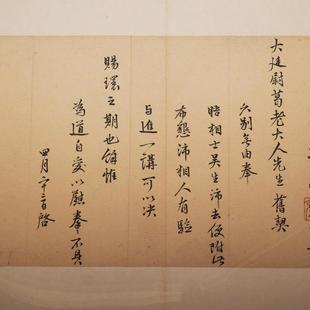 大廷尉葛老大人先生舊契
久別無由奉
晤相士吳生沛去便附此
布懇沛相人有驗
与進一講可以决
賜環之期也餘惟
為道自愛以慰拳〻不具
四月二十二日啓